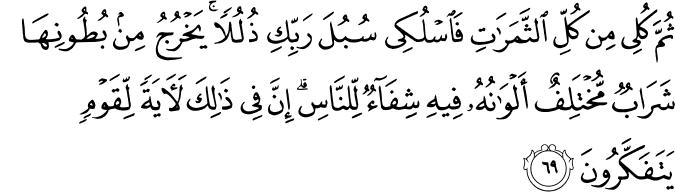 ثُمَّ كُلِى مِن كُلِّ ٱلثَّمَرَٰتِ فَٱسۡلُكِى سُبُلَ رَبِّكِ ذُلُلٗاۚ يَخۡرُجُ مِنۢ بُطُونِهَا
شَرَابٞ مُّخۡتَلِفٌ أَلۡوَٰنُهُۥ فِيهِ شِفَآءٞ لِّلنَّاسِۚ إِنَّ فِى ذَٰلِكَ لَأٓيَةٗ لِّقَوۡمٖ
يَتَفَكَّرُونَ ٦٩